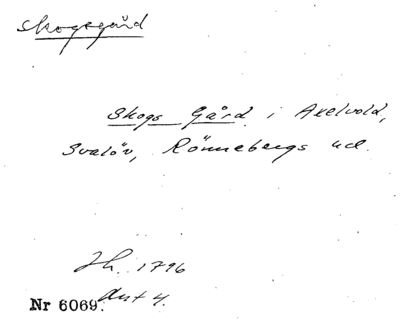 Skogsgård
Skogs Gård i Axelvold,
Svalöv, Rönnebergs hd.
Jh. 1796
Ant 4.
Nr 6069.